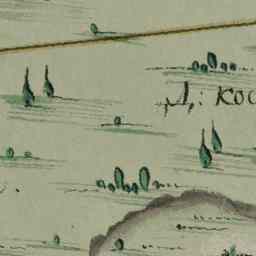 Д: кос